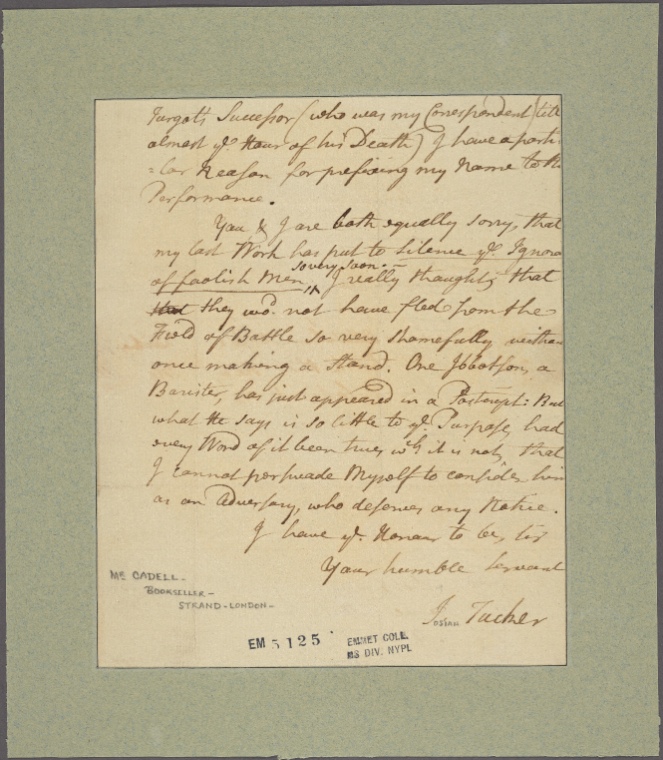 Turgot's Successor (who was my Correspondent till
almost yᵉ Hour of his Death) I have a parti-
=lar Reason for prefixing my Name to th
Performance.
You & I are both equally sorry, that
my last Work has put to silence yᵉ Ignora
of foolish Men, so very soon. I really thought, that
that they woᵈ. not have fled from the
Field of Battle so very shamefully witho
once making a Stand. One Ibbotson, a
Barister, has just appeared in a Postscript: But
what He says is so little to yᵉ Purpose, had
every Word of it been true, wᶜʰ it is not, that
I cannot persuade Myself to consider him
as an Adversary, who deserves any Notice.
I have yᵉ Honour to be, Sir
Your humble Servant
Josiah Tucker
Mᴿ CADELL -
BOOKSELLER -
STRAND - LONDON -
EM 5125
EMMET COLL.
MS DIV. NYPL